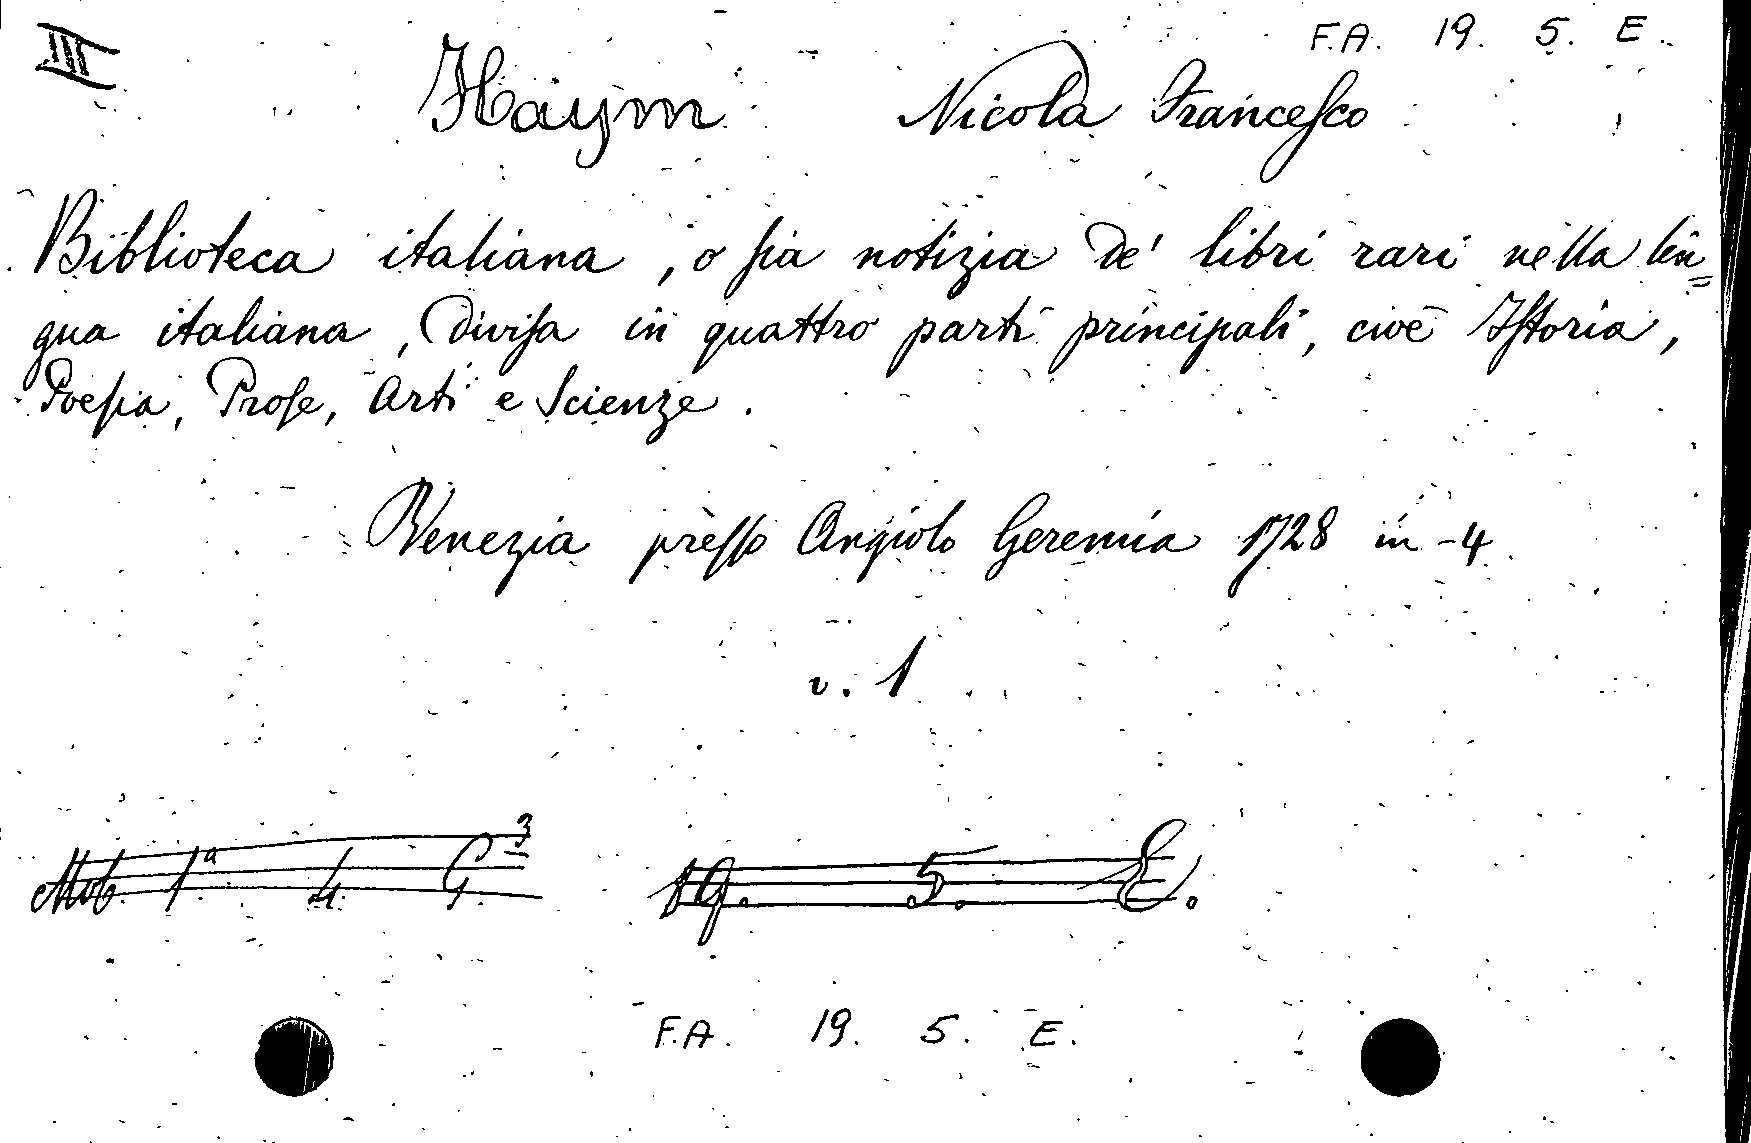 III
F.A. 19. 5. E.
Haym Nicola Francesco
Biblioteca italiana, o sia notizia de' libri rari nella lin=
gua italiana, divisa in quattro parti principali, cioè Istoria,
Poesia, Prose, Arti e Scienze.
Venezia presso Angiolo Geremia 1728 in-4.
v. 1
Mob. 1ª 4. G3 19. 5. E.
F.A. 19. 5. E.